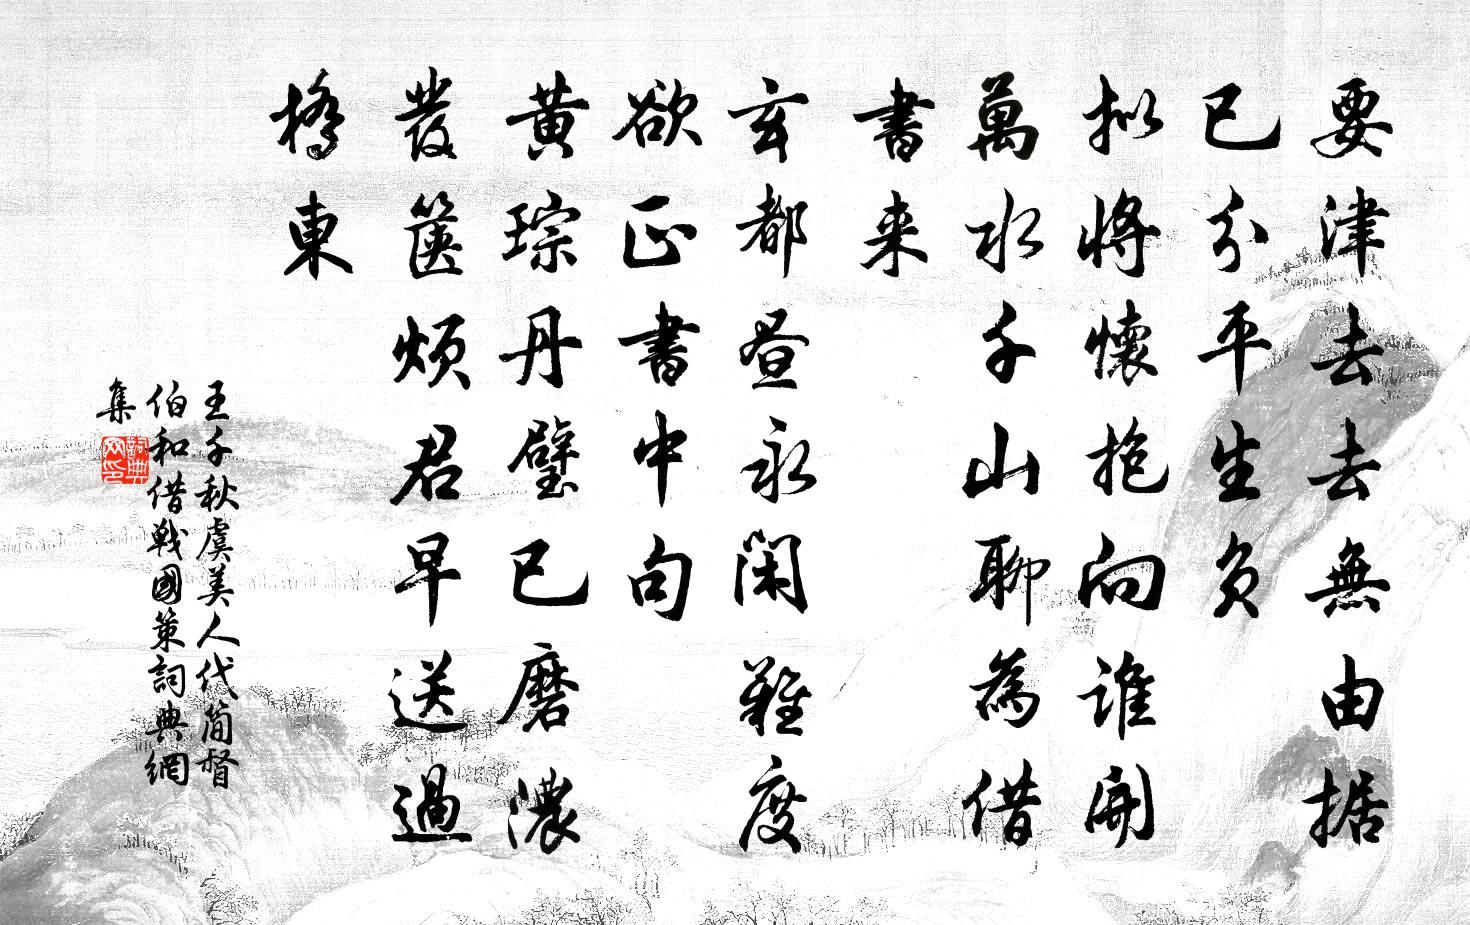 要津去去無由据
已分平生負
拟將懷抱向誰開
萬水千山聊為借
書来
玄都昼永闲難度
欲正書中句
黃琮丹璧已磨濃
發篋煩君早送過
橋東
王千秋虞美人代简督
伯和借戰國策詞典網
集
詞典网印